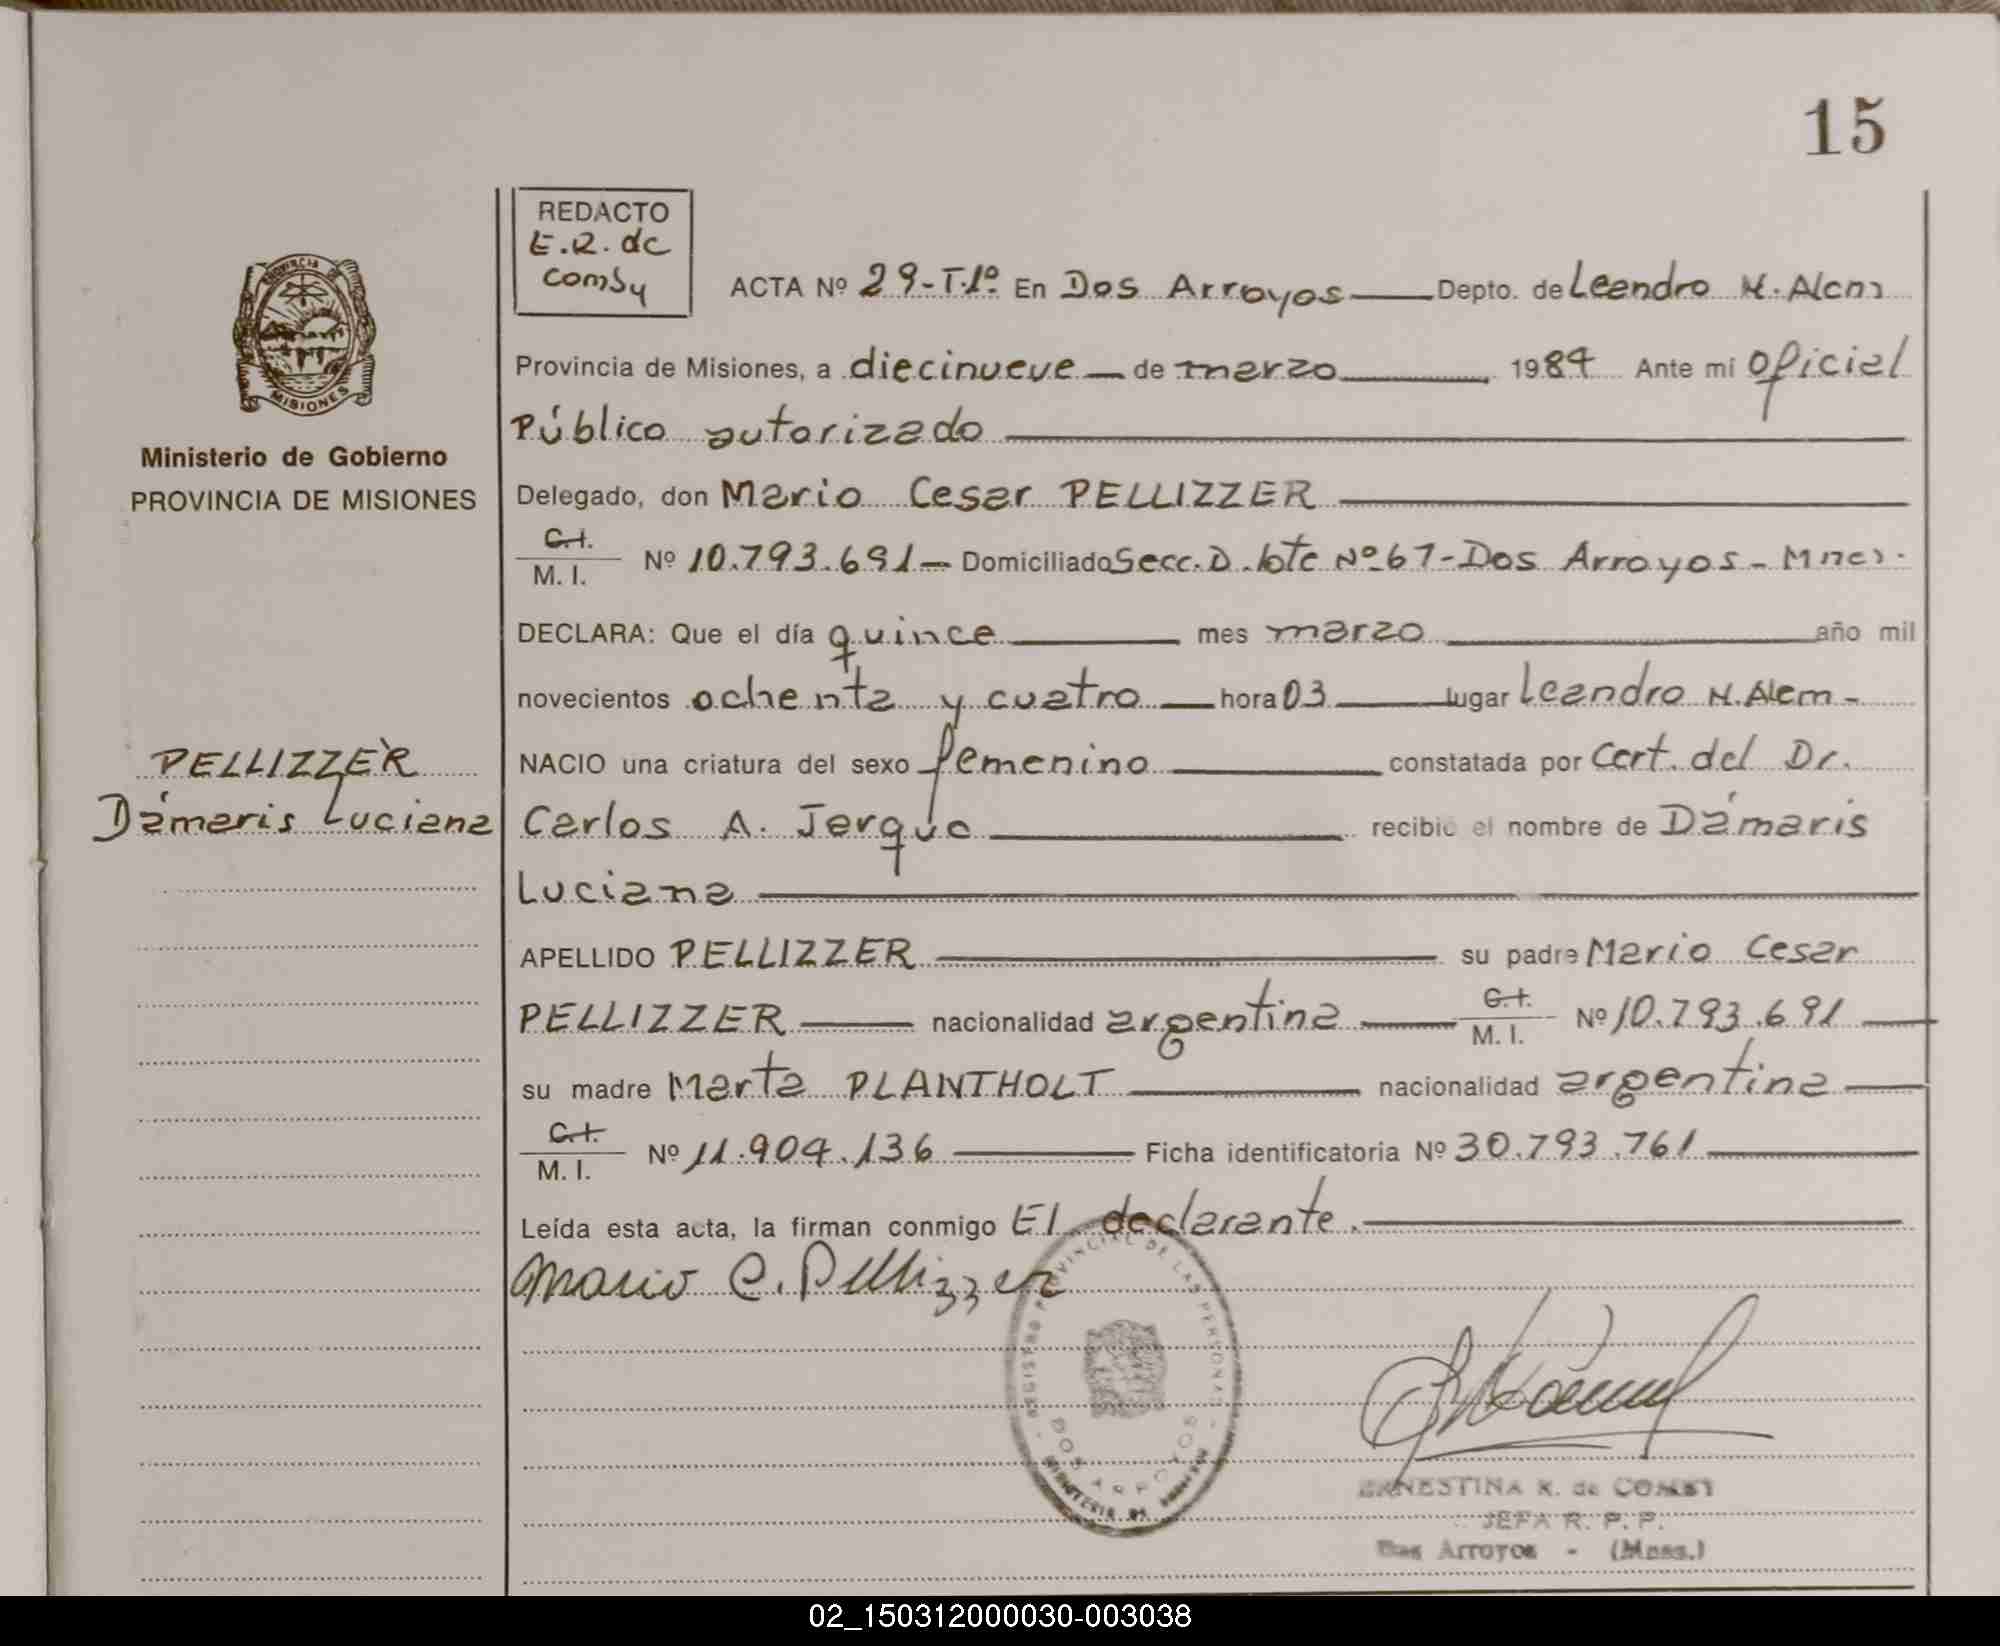 15
REDACTO
E.R. de
Comsy
PROVINCIA DE
MISIONES
Ministerio de Gobierno
PROVINCIA DE MISIONES
ACTA Nº 29-T.1º En Dos Arroyos Depto. de Leandro N. Alem
Provincia de Misiones, a diecinueve de marzo 1984 Ante mí Oficial
Público autorizado
Delegado, don Mario Cesar PELLIZZER
C.I.
M. I. Nº 10.793.691 Domiciliado Secc. D. lote Nº 67-Dos Arroyos - Mnes.
DECLARA: Que el día quince mes marzo año mil
novecientos ochenta y cuatro hora 03 lugar Leandro N. Alem -
PELLIZZER
Dámaris Luciana
NACIO una criatura del sexo femenino constatada por Cert. del Dr.
Carlos A. Jerque recibió el nombre de Dámaris
Luciana
APELLIDO PELLIZZER su padre Mario Cesar
PELLIZZER nacionalidad argentina C.I. M. I. Nº 10.793.691
su madre Marta PLANTHOLT nacionalidad argentina
C.I.
M. I. Nº 11.904.136 Ficha identificatoria Nº 30.793.761
Leída esta acta, la firman conmigo El declarante.
Mario C. Pellizzer
REGISTRO PROVINCIAL DE LAS PERSONAS
DOS ARROYOS
MINISTERIO DE GOBIERNO
ERNESTINA R. de COMSY
JEFA R. P. P.
Dos Arroyos - (Mnes.)
02_150312000030-003038